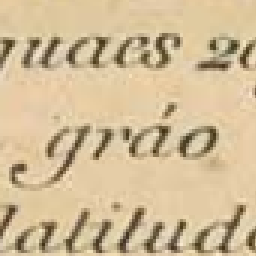 quaes 20
gráo
latitude